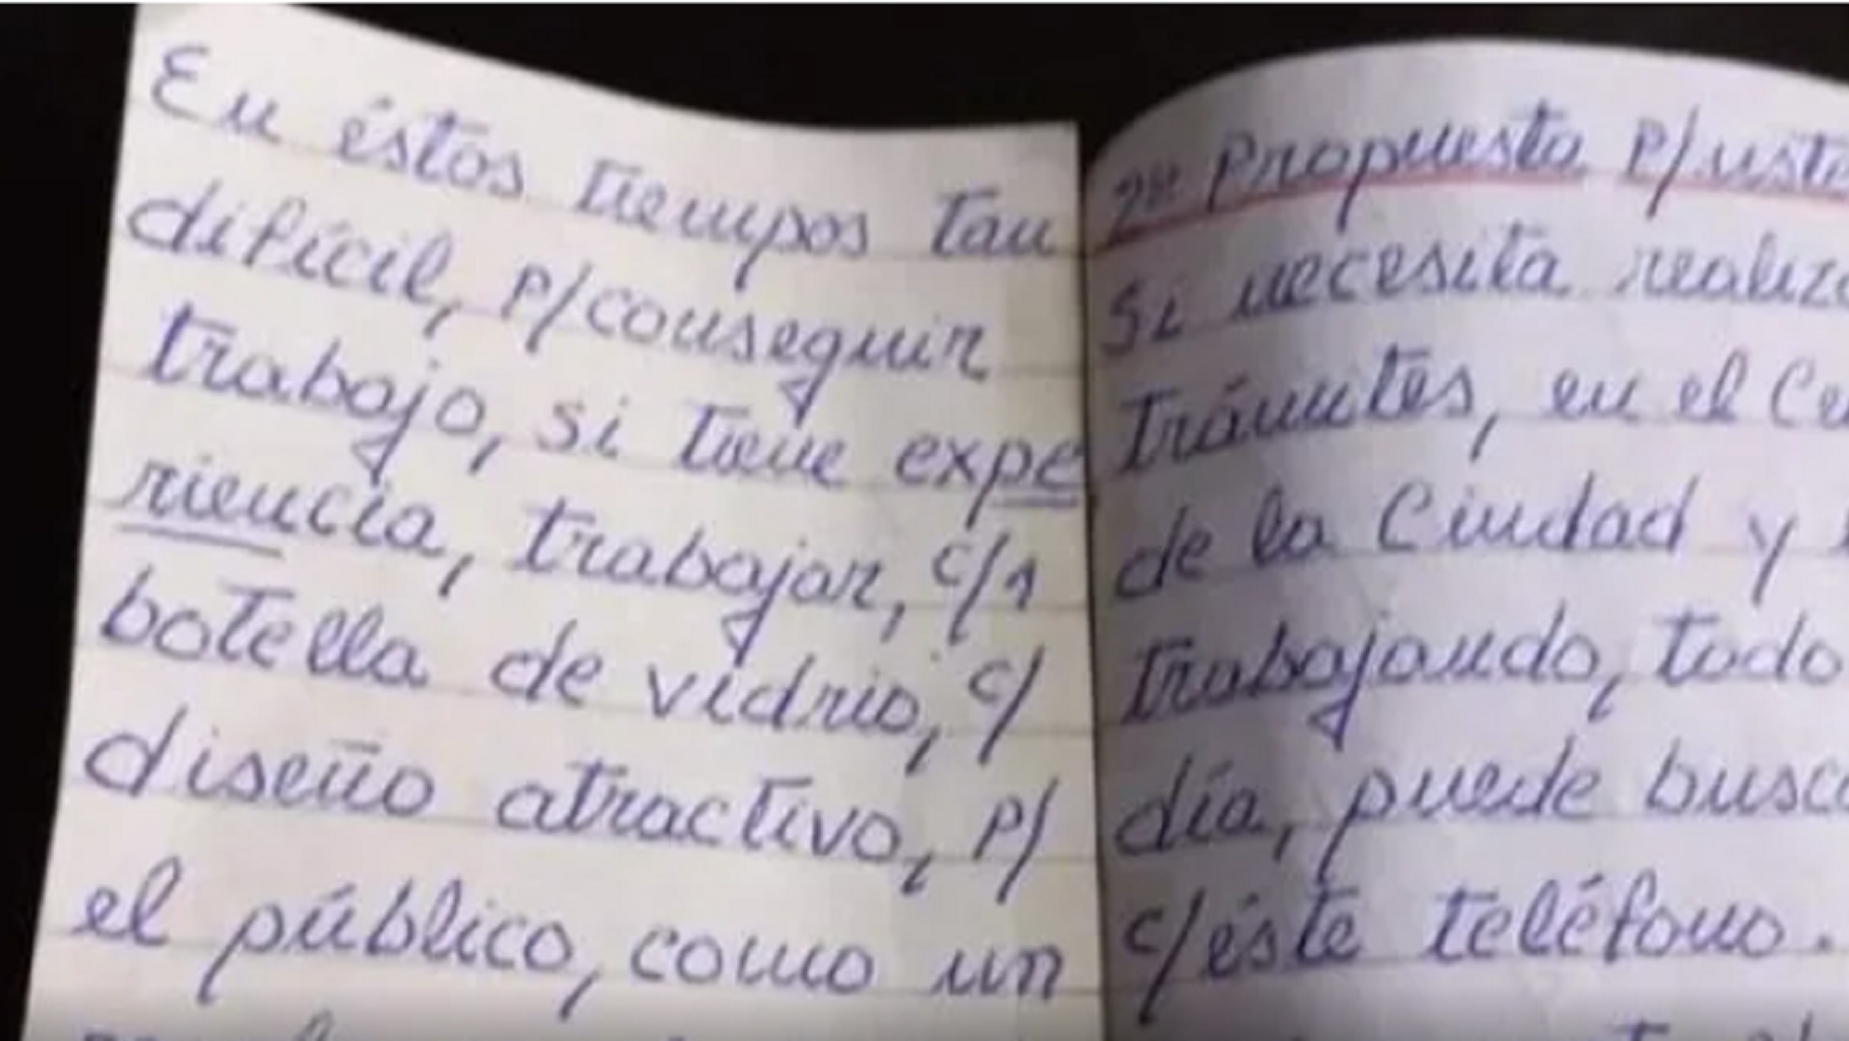 En éstos tiempos tan
difícil, p/conseguir
trabajo, si tiene expe
riencia, trabajar, c/1
botella de vidrio, c/
diseño atractivo, p/
el público, como un
Propuesta P/
Si necesita
trámites, en el
de la Ciudad y
trabajando, todo
día, puede
c/éste teléfono.